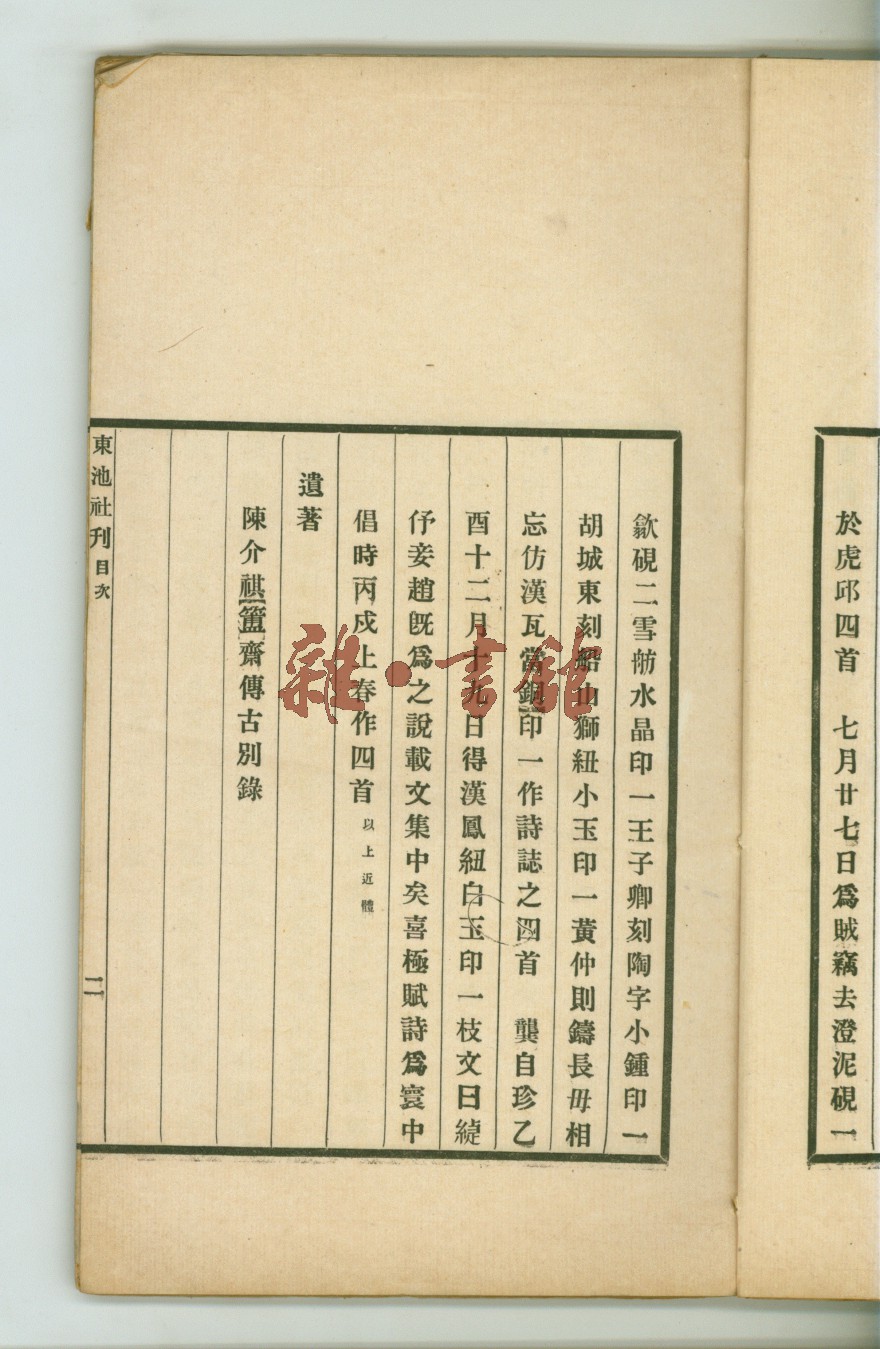 於虎邱四首　七月廿七日爲賊竊去澄泥硯一
歙硯二雪舫水晶印一王子卿刻陶字小鍾印一
胡城東刻船山獅紐小玉印一黃仲則鑄長毋相
忘仿漢瓦當銅印一作詩誌之四首　龔自珍乙
酉十二月十九日得漢鳳紐白玉印一枝文曰緁
伃妾趙旣爲之說載文集中矣喜極賦詩爲寰中
倡時丙戌上春作四首以上近體
遺著
陳介祺簠齋傳古別錄
東池社刊目次
二
雜·書館